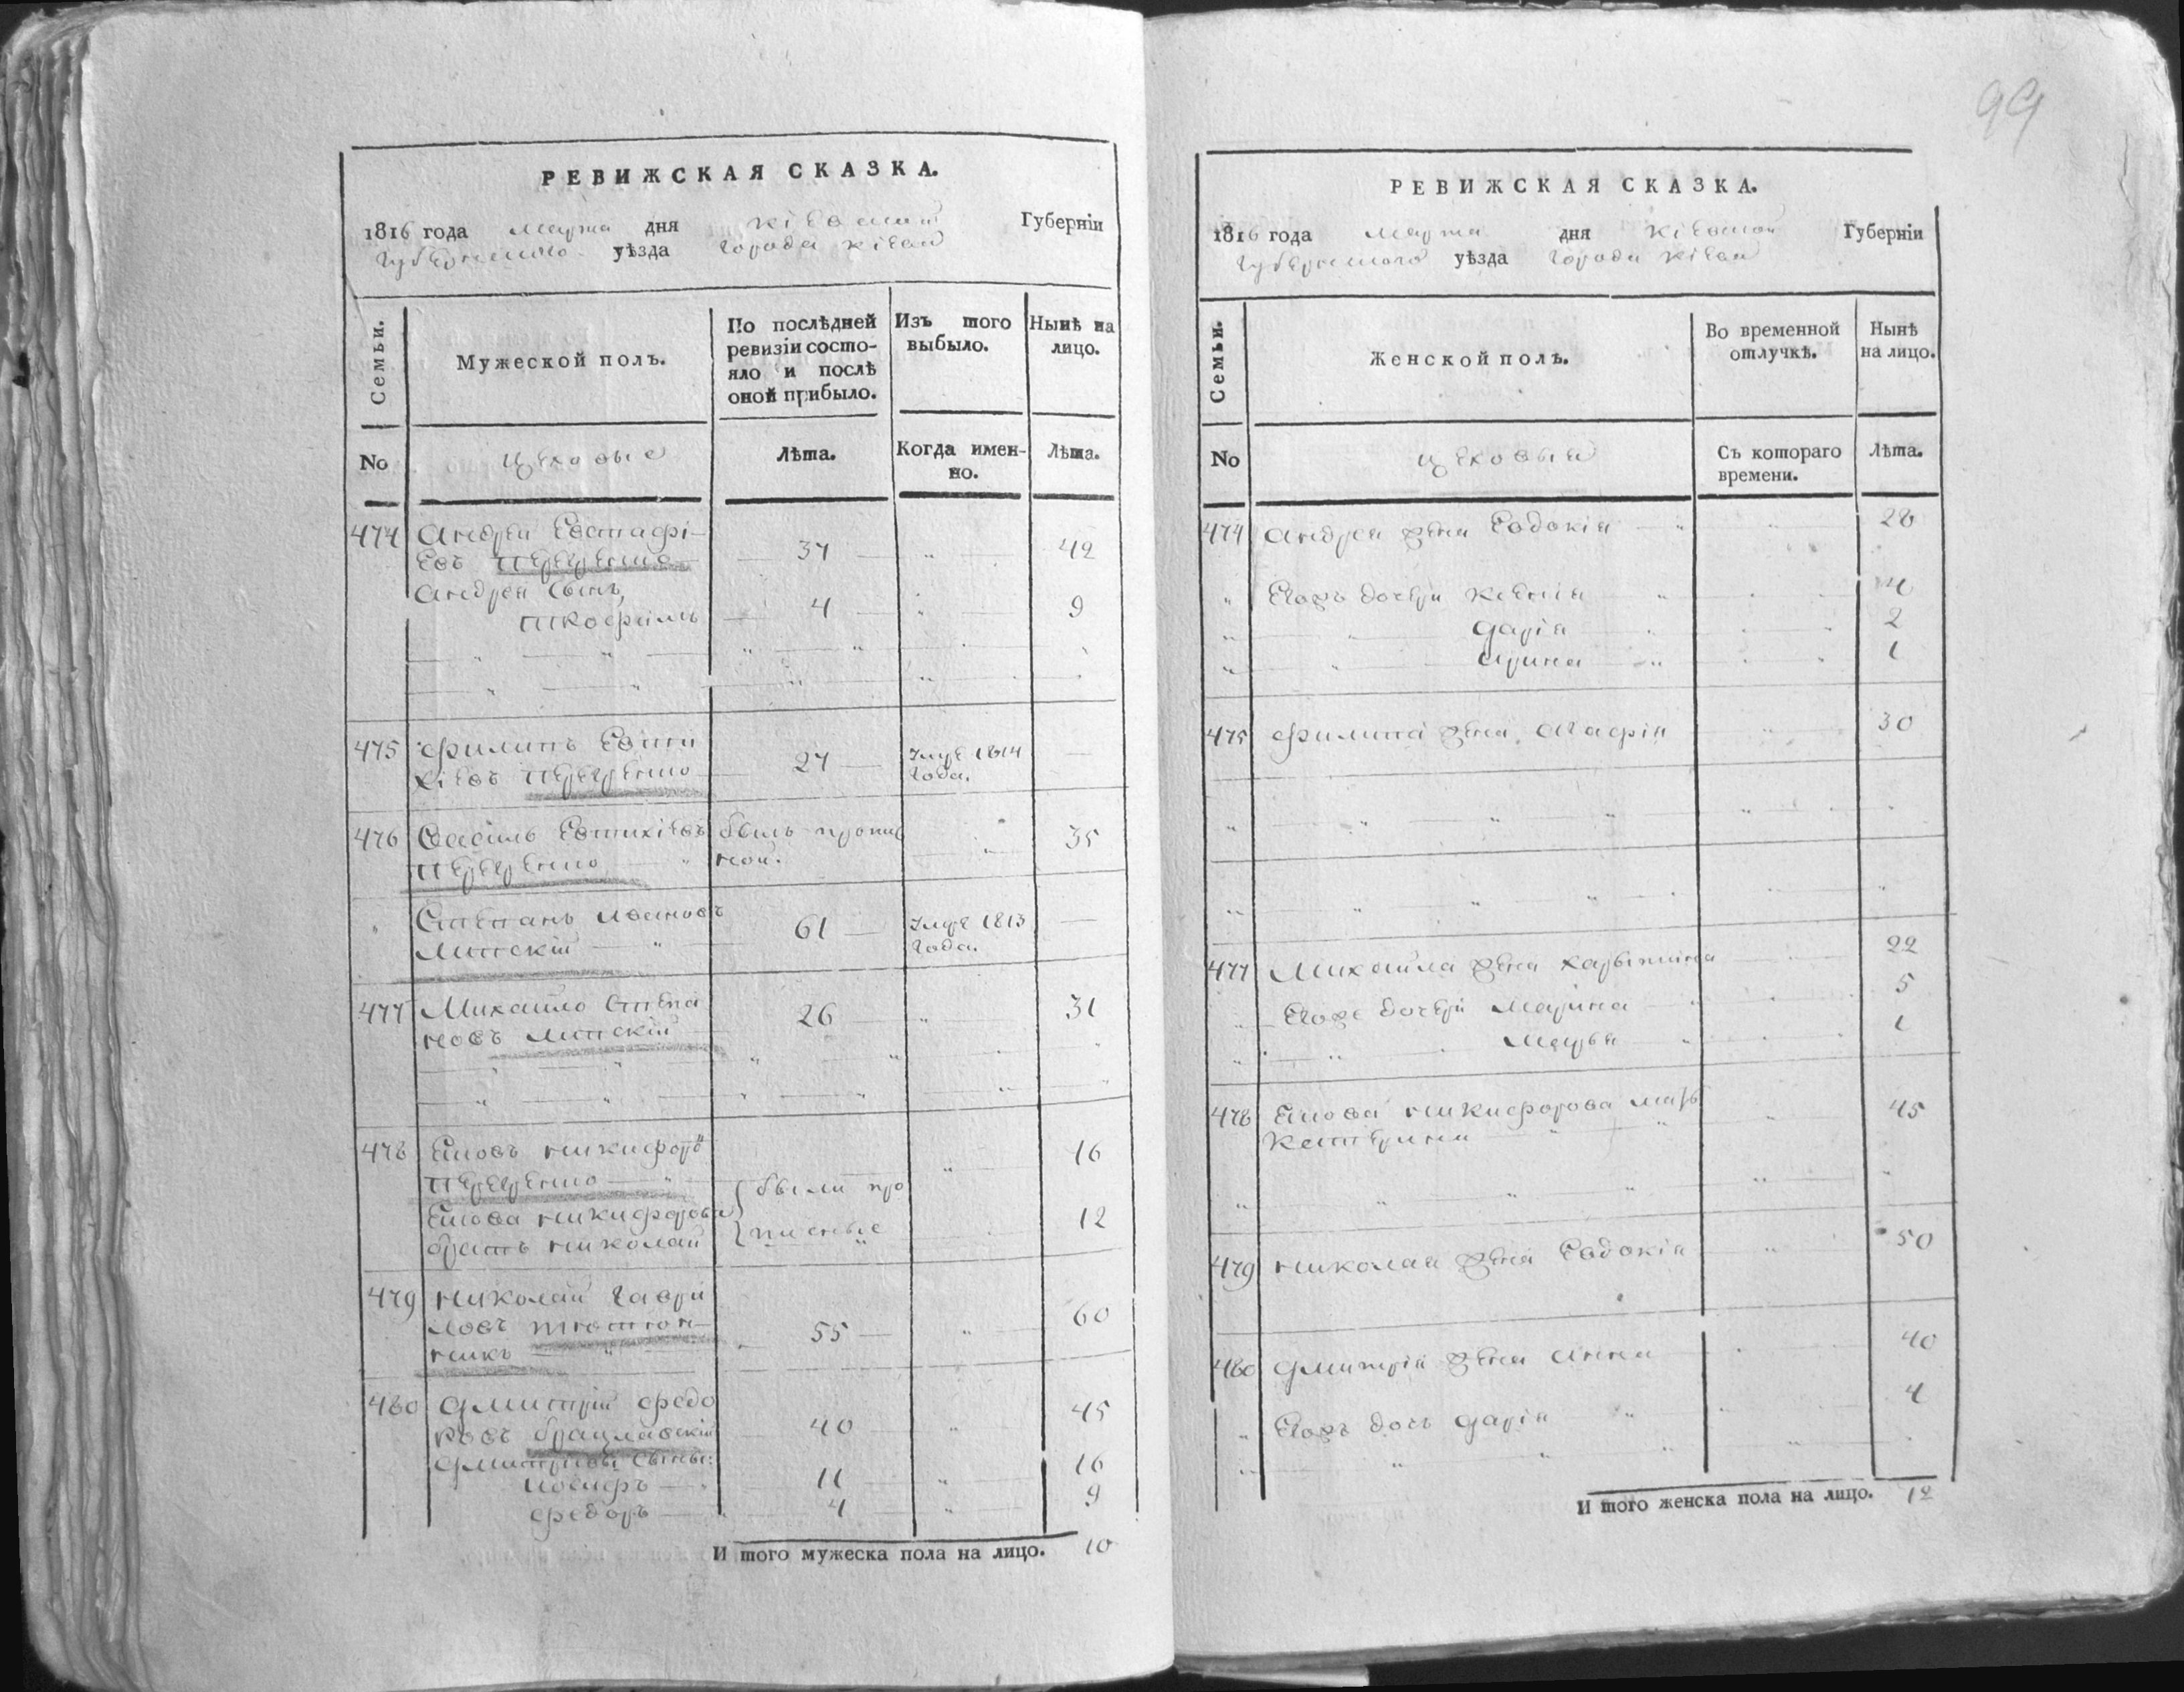 99
РЕВИЖСКАЯ СКАЗКА.
1816 года Марта дня Кіевской Губерніи
Губернского уѣзда города Кіева
Семьи.
Мужеской полъ.
По послѣдней ревизіи состо-
яло и послѣ
оной прибыло.
Изъ того
выбыло.
Нынѣ на
лицо.
No
цеховые
Лѣта.
Когда имен-
но.
Лѣта.
474 Андрей Евстафі-
евъ 37 42
Андрея сынъ,
4 9
475 Филипъ Евти
хіевъ 27 1814
года.
476 Василь Евтихіевъ былъ пропис 35
ной.
Степанъ Ивановъ
Липскій 61 1813
года.
477 Михайло Степа
новъ Липскій 26 31
478 Никифоръ 16
были про
Никифорова
братъ Николай писные 12
479 Николай Гаври
ловъ 55 60
никъ
480 Дмитрій Федо
ровъ Брацлавскій 40 45
Дмитріевы сыны:
Иосифъ 11 16
Федоръ 4 9
И того мужеска пола на лицо. 10
РЕВИЖСКАЯ СКАЗКА.
1816 года Марта дня Кіевской Губерніи
Губернского уѣзда города Кіева
Семьи.
Женской полъ.
Во временной
отлучкѣ.
Нынѣ
на лицо.
No
цеховыя
Съ котораго
времени.
Лѣта.
474 Андрея жена Евдокія 28
Егожъ дочери Ксенія 4
Дарія 2
Ирина 1
475 Филипа жена Агафія 30
477 Михайла жена 22
Егоже дочери Марина 5
Марья 1
478 Никифорова мать 45
Катерина
479 Николая жена Евдокія 50
480 Дмитрія жена Анна 40
Егожъ дочь Дарія 4
И того женска пола на лицо. 12